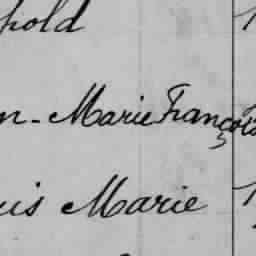 pold
n-Marie François
uis Marie